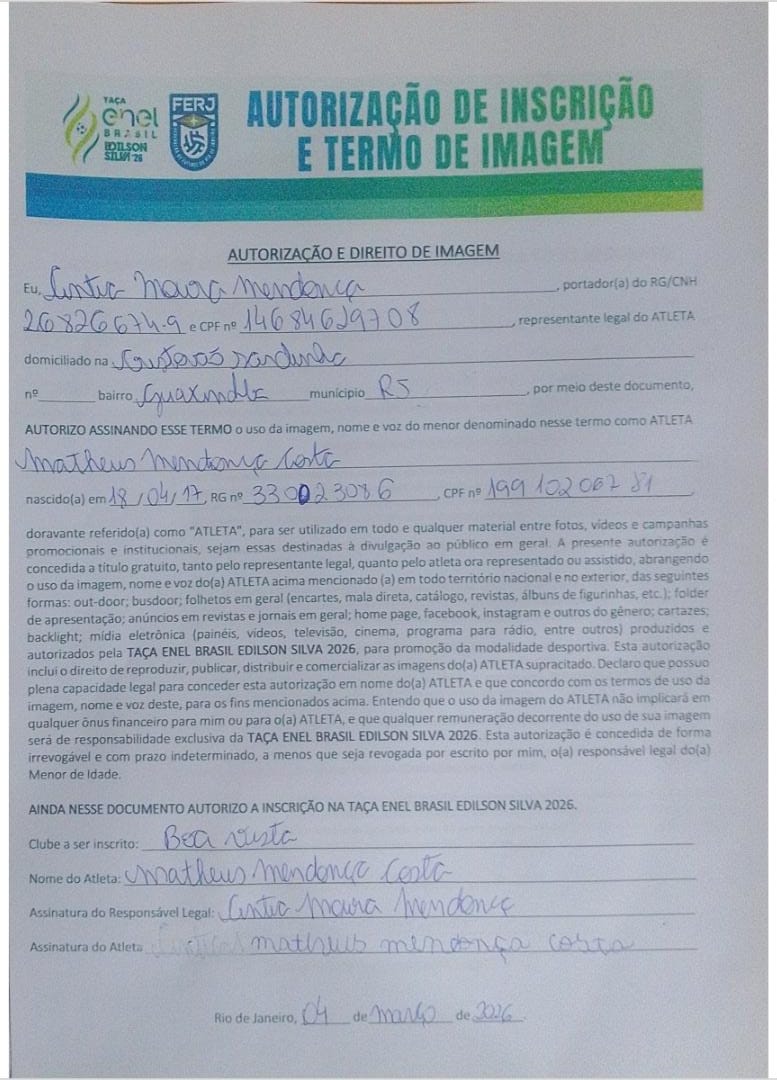 TAÇA
enel
BRASIL
EDILSON
SILVA '26
FERJ
AUTORIZAÇÃO DE INSCRIÇÃO
E TERMO DE IMAGEM
AUTORIZAÇÃO E DIREITO DE IMAGEM
Eu, Cintia Moura Mendonça, portador(a) do RG/CNH
26826674-9 e CPF nº 14684629708, representante legal do ATLETA
domiciliado na Gustavo Sardinha
nº bairro município RJ, por meio deste documento,
AUTORIZO ASSINANDO ESSE TERMO o uso da imagem, nome e voz do menor denominado nesse termo como ATLETA
Matheus Mendonça Costa
nascido(a) em 18/04/17, RG nº 330023086, CPF nº 199 102 067 81
doravante referido(a) como "ATLETA", para ser utilizado em todo e qualquer material entre fotos, vídeos e campanhas
promocionais e institucionais, sejam essas destinadas à divulgação ao público em geral. A presente autorização é
concedida a título gratuito, tanto pelo representante legal, quanto pelo atleta ora representado ou assistido, abrangendo
o uso da imagem, nome e voz do(a) ATLETA acima mencionado (a) em todo território nacional e no exterior, das seguintes
formas: out-door; busdoor; folhetos em geral (encartes, mala direta, catálogo, revistas, álbuns de figurinhas, etc.); folder
de apresentação; anúncios em revistas e jornais em geral; home page, facebook, instagram e outros do gênero; cartazes;
backlight; mídia eletrônica (painéis, vídeos, televisão, cinema, programa para rádio, entre outros) produzidos e
autorizados pela TAÇA ENEL BRASIL EDILSON SILVA 2026, para promoção da modalidade desportiva. Esta autorização
inclui o direito de reproduzir, publicar, distribuir e comercializar as imagens do(a) ATLETA supracitado. Declaro que possuo
plena capacidade legal para conceder esta autorização em nome do(a) ATLETA e que concordo com os termos de uso da
imagem, nome e voz deste, para os fins mencionados acima. Entendo que o uso da imagem do ATLETA não implicará em
qualquer ônus financeiro para mim ou para o(a) ATLETA, e que qualquer remuneração decorrente do uso de sua imagem
será de responsabilidade exclusiva da TAÇA ENEL BRASIL EDILSON SILVA 2026. Esta autorização é concedida de forma
irrevogável e com prazo indeterminado, a menos que seja revogada por escrito por mim, o(a) responsável legal do(a)
Menor de Idade.
AINDA NESSE DOCUMENTO AUTORIZO A INSCRIÇÃO NA TAÇA ENEL BRASIL EDILSON SILVA 2026.
Clube a ser inscrito: Boa vista
Nome do Atleta: Matheus Mendonça Costa
Assinatura do Responsável Legal: Cintia Moura Mendonça
Assinatura do Atleta matheus mendonça costa
Rio de Janeiro, 04 de março de 2026.